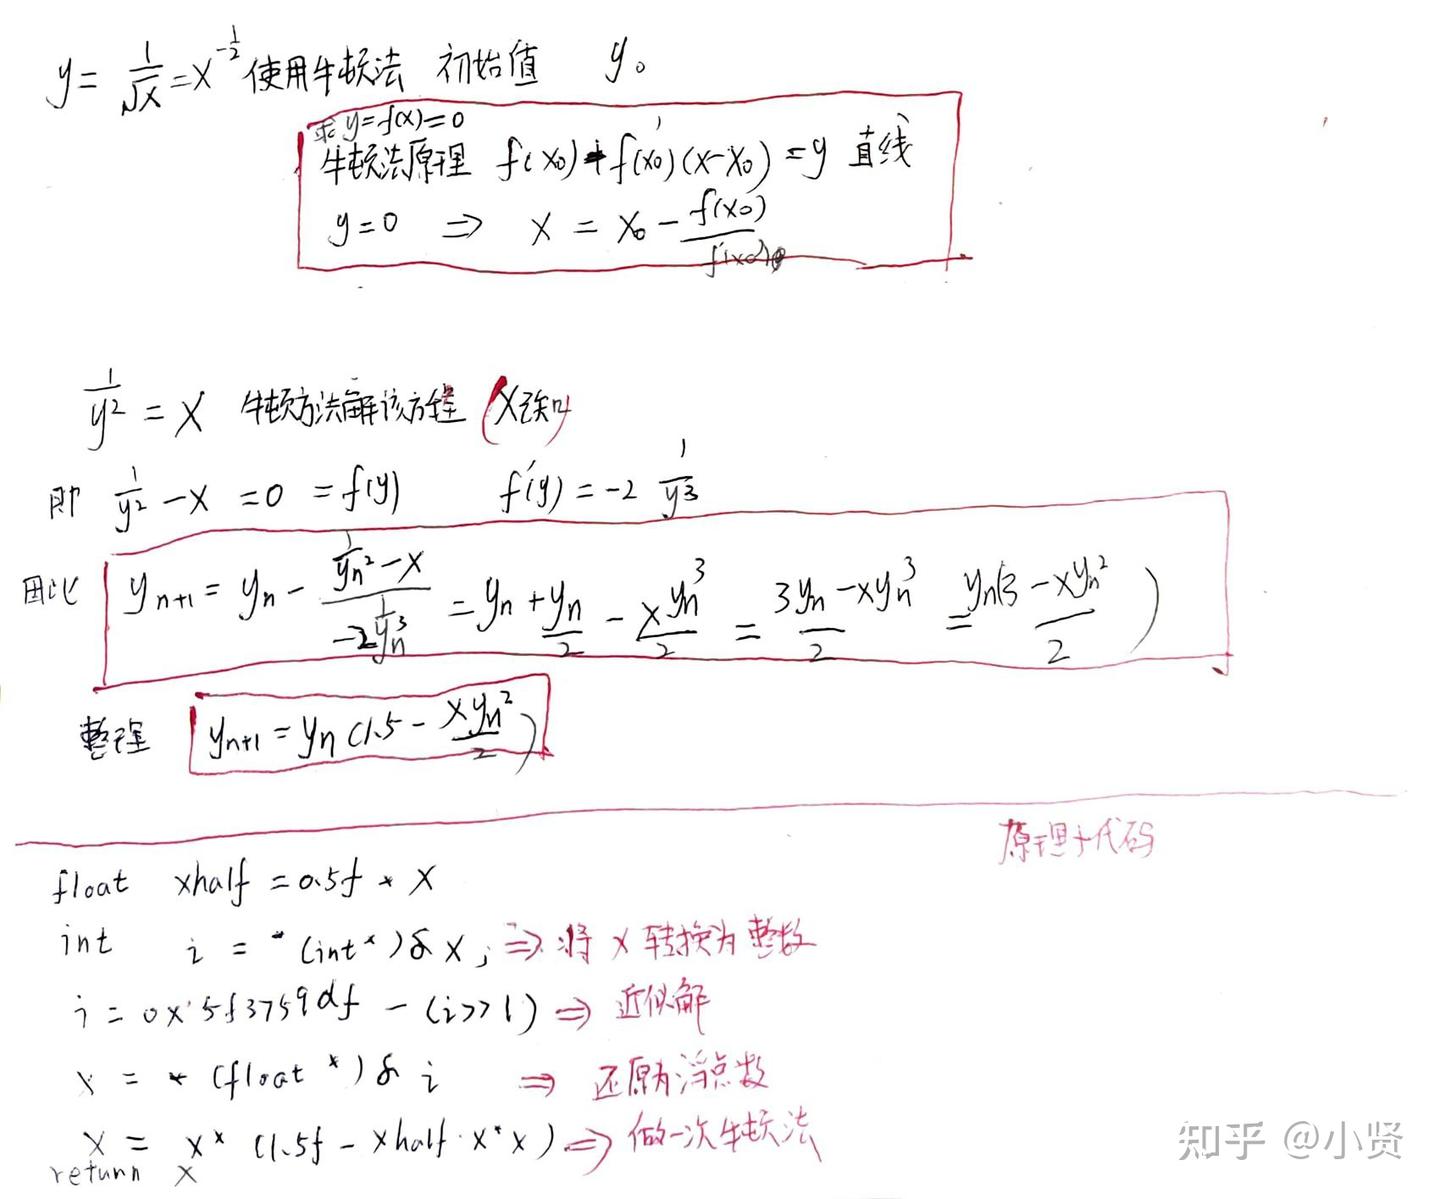 y = 1/√x = x^(-1/2) 使用牛顿法 初始值 y₀
求 y=f(x)=0
牛顿法原理 f(x₀)+f'(x₀)(x-x₀)=y 直线
y=0 ⇒ x = x₀ - f(x₀)/f'(x₀)
1/y² = x 牛顿方法解该方程 (x已知)
即 1/y² - x = 0 = f(y) f'(y) = -2 1/y³
因此 yₙ₊₁ = yₙ - (1/yₙ² - x)/(-2 1/yₙ³) = yₙ + yₙ/2 - xyₙ³/2 = (3yₙ - xyₙ³)/2 = yₙ(3 - xyₙ²)/2)
整理 yₙ₊₁ = yₙ(1.5 - xyₙ²/2)
原理+代码
float xhalf = 0.5f * x
int i = *(int*)&x; ⇒ 将 x 转换为整数
i = 0x5f3759df - (i>>1) ⇒ 近似解
x = *(float *)& i ⇒ 还原为浮点数
x = x* (1.5f - xhalf·x*x) ⇒ 做一次牛顿法
return x
知乎 @小贤